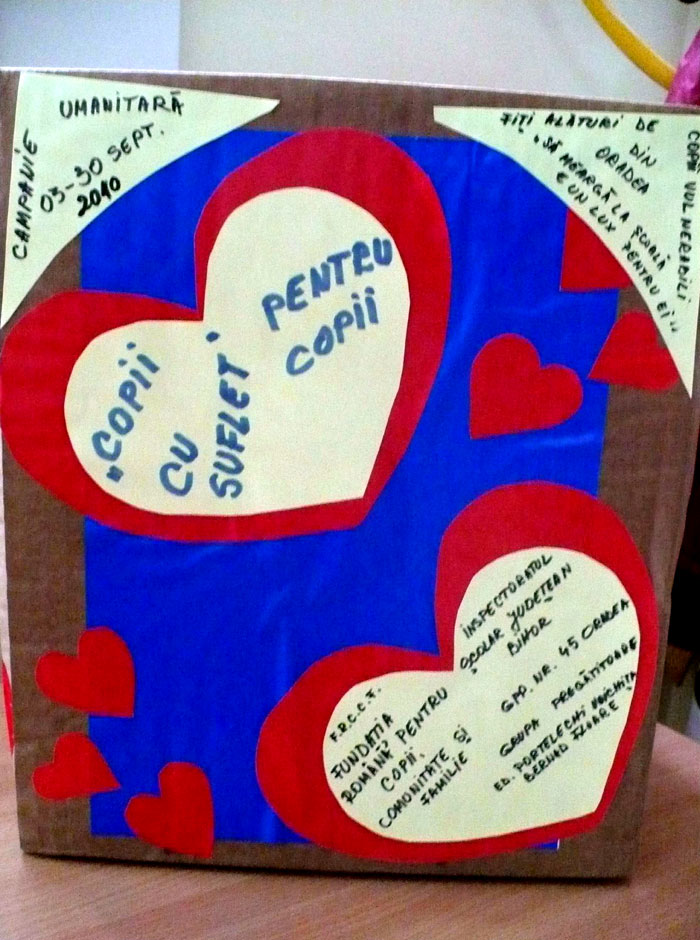 CAMPANIE
UMANITARĂ
03-30 SEPT.
2010
FIȚI ALĂTURI DE
COPII VULNERABILI
DIN
ORADEA
„SĂ MEARGĂ LA ȘCOALĂ
E UN LUX PENTRU EI"
„COPII
CU
SUFLET,
PENTRU
COPII
F.R.C.C.F.
FUNDAȚIA
ROMÂNĂ PENTRU
COPII,
COMUNITATE ȘI
FAMILIE
INSPECTORATUL
ȘCOLAR JUDEȚEAN
BIHOR
GPP. NR. 45 ORADEA
GRUPA PREGĂTITOARE
ED. PORTELECHI VOICHIȚA
BERNAD FLOARE